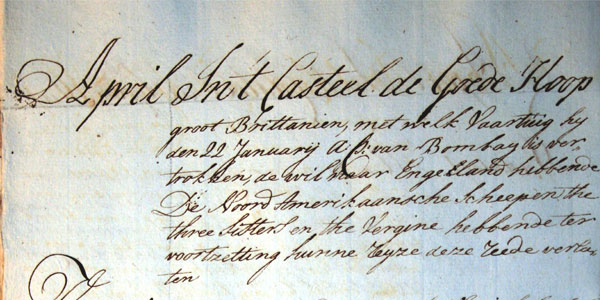 April In't Casteel de Goede Hoop
groot Brittanien, met welk Vaartuig hy
den 22 January A.P. van Bombay is ver
trokken, de wil naar Engeland hebbende
De Noord Amerikaansche Scheepen, the
three Sisters en the Vergine hebbende ter
voortzetting hunne Reyze deze Reede verla
ten